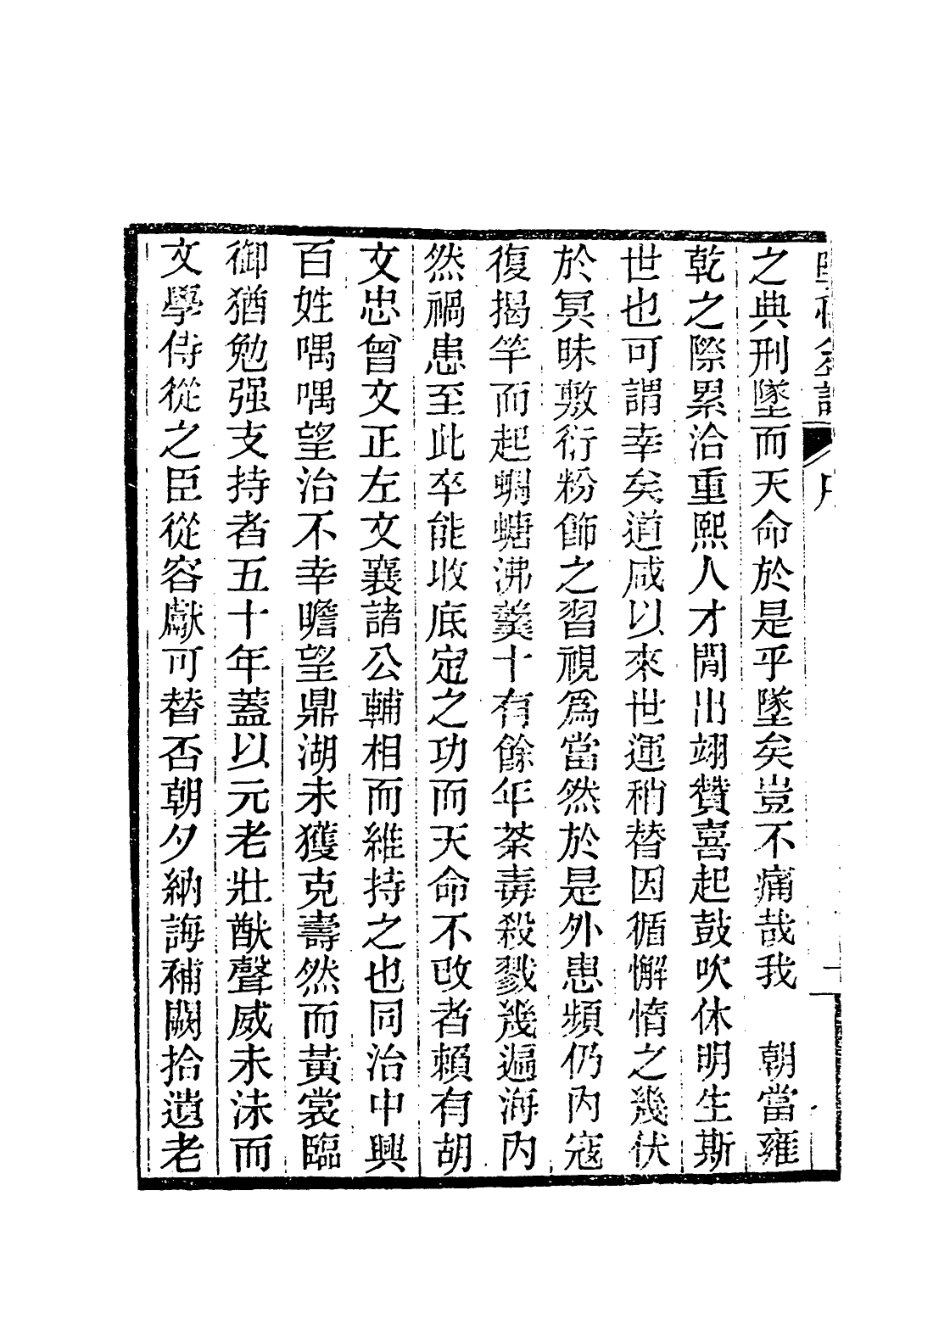 之典刑墜而天命於是乎墜矣豈不痛哉我　朝當雍
乾之際累洽重熙人才閒出翊贊喜起鼓吹休明生斯
世也可謂幸矣道咸以來世運稍替因循懈惰之幾伏
於冥昧敷衍粉飾之習視爲當然於是外患頻仍內寇
復揭竿而起蜩螗沸羹十有餘年荼毒殺戮幾遍海內
然禍患至此卒能收底定之功而天命不改者賴有胡
文忠曾文正左文襄諸公輔相而維持之也同治中興
百姓喁喁望治不幸瞻望鼎湖未獲克壽然而黃裳臨
御猶勉强支持者五十年蓋以元老壯猷聲威未沬而
文學侍從之臣從容獻可替否朝夕納誨補闕拾遺老